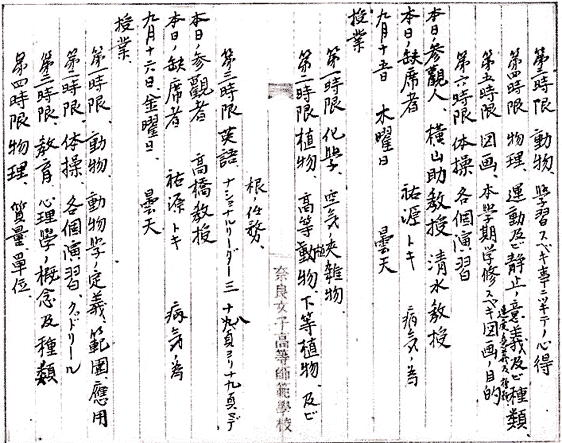 第三時限 動物、學習スベキ事ニツキテノ心得
第四時限 物理、運動及ビ静止ノ意義及ビ種類
速度ノ意義及
第五時限 図画、本学期学修スベキ図画ノ目的
第六時限 体操、各個演習
本日ノ参觀人 横山助教授 清水教授
本日ノ缺席者 祐源トキ 病気ノ為
九月十五日 木曜日 曇天
授業、
第一時限 化學、空気ノ夾雑物
第二時限 植物、高等植物、下等植物、及ビ
根ノ任務、
奈良女子高等師範學校
第三時限 英語、ナショナルリーダー三 十八頁ヨリ十九頁マデ
本日ノ参觀者 高橋教授
本日ノ缺席者 祐源トキ 病気ノ為
九月十六日、金曜日、 曇天
授業、
第一時限、動物、動物学ノ定義、範囲應用
第二時限、体操、各個演習 クヮドリール
第三時限、教育、心理學ノ概念及種類
第四時限 物理、質量ノ單位、